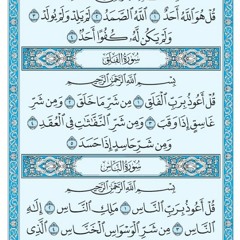 قُلْ هُوَ ٱللَّهُ أَحَدٌ ۝١ ٱللَّهُ ٱلصَّمَدُ ۝٢ لَمْ يَلِدْ وَلَمْ يُولَدْ ۝٣
وَلَمْ يَكُن لَّهُۥ كُفُوًا أَحَدٌۢ ۝٤
سُورَةُ الفَلَقِ
بِسْمِ ٱللَّهِ ٱلرَّحْمَٰنِ ٱلرَّحِيمِ
قُلْ أَعُوذُ بِرَبِّ ٱلْفَلَقِ ۝١ مِن شَرِّ مَا خَلَقَ ۝٢ وَمِن شَرِّ
غَاسِقٍ إِذَا وَقَبَ ۝٣ وَمِن شَرِّ ٱلنَّفَّٰثَٰتِ فِى ٱلْعُقَدِ ۝٤
وَمِن شَرِّ حَاسِدٍ إِذَا حَسَدَ ۝٥
سُورَةُ النَّاسِ
بِسْمِ ٱللَّهِ ٱلرَّحْمَٰنِ ٱلرَّحِيمِ
قُلْ أَعُوذُ بِرَبِّ ٱلنَّاسِ ۝١ مَلِكِ ٱلنَّاسِ ۝٢ إِلَٰهِ
ٱلنَّاسِ ۝٣ مِن شَرِّ ٱلْوَسْوَاسِ ٱلْخَنَّاسِ ۝٤ ٱلَّذِى